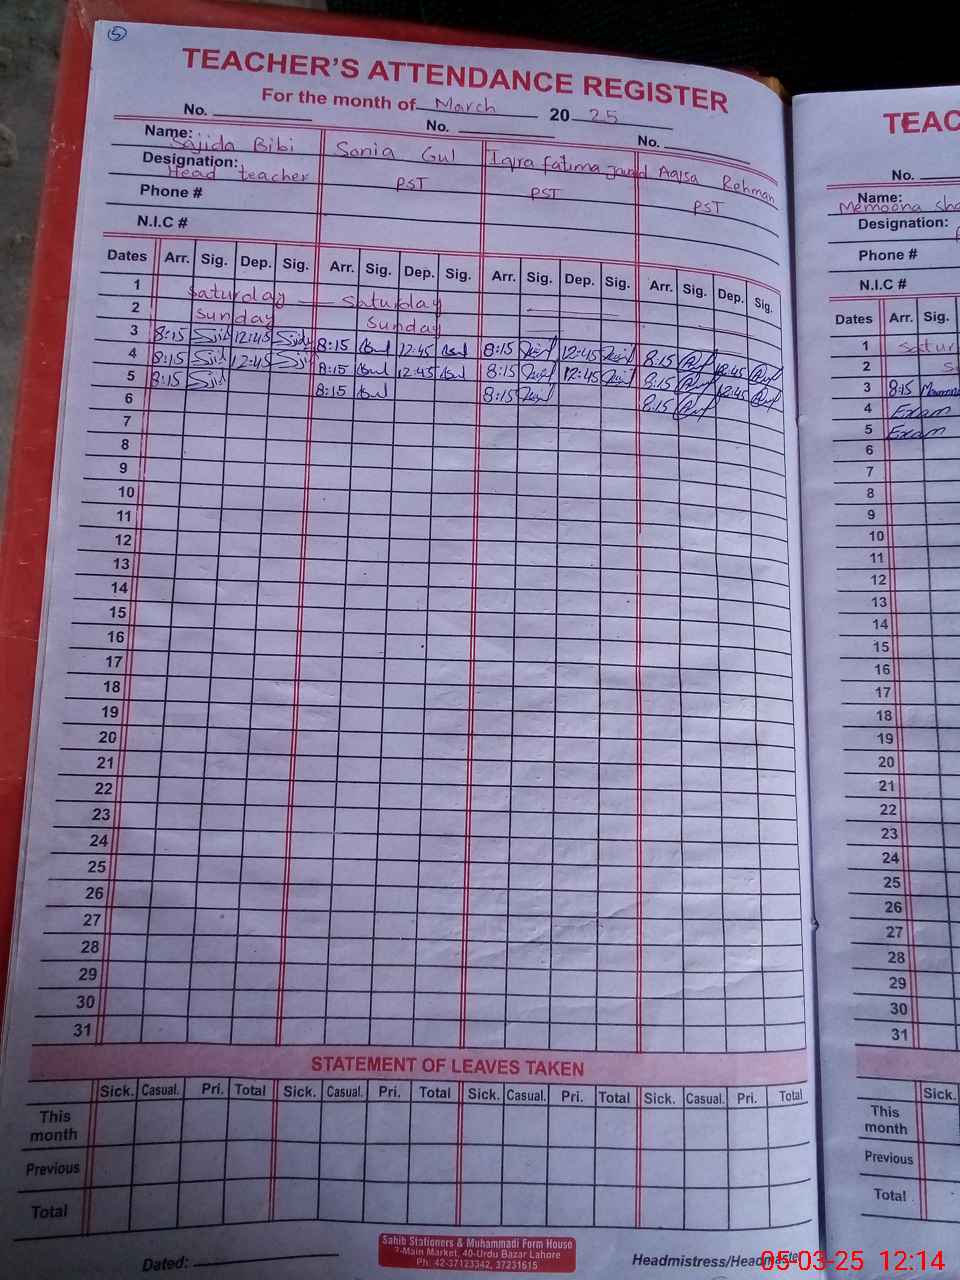 5
TEACHER'S ATTENDANCE REGISTER
For the month of March 2025
No. No. No.
Name: Sajida Bibi Sonia Gul Iqra fatima Javed Aqsa Rehman
Designation: Head teacher PST PST PST
Phone #
N.I.C #
Dates Arr. Sig. Dep. Sig. Arr. Sig. Dep. Sig. Arr. Sig. Dep. Sig. Arr. Sig. Dep. Sig.
1 Saturday Saturday
2 Sunday Sunday
3 8:15 12:45 8:15 12:45 8:15 12:45 8:15 12:45
4 8:15 12:45 8:15 12:45 8:15 12:45 8:15 12:45
5 8:15 8:15 8:15 8:15
6
7
8
9
10
11
12
13
14
15
16
17
18
19
20
21
22
23
24
25
26
27
28
29
30
31
STATEMENT OF LEAVES TAKEN
Sick. Casual. Pri. Total Sick. Casual. Pri. Total Sick. Casual. Pri. Total Sick. Casual. Pri. Total
This month
Previous
Total
Dated: Headmistress/Headmaster
Sahib Stationers & Muhammadi Form House
7-Main Market, 40-Urdu Bazar Lahore
Ph: 42-37123342, 37231615
TEAC
No.
Name: Memoona
Designation:
Phone #
N.I.C #
Dates Arr. Sig.
1 Satur
2 S
3 8:15
4 Exam
5 Exam
6
7
8
9
10
11
12
13
14
15
16
17
18
19
20
21
22
23
24
25
26
27
28
29
30
31
Sick.
This month
Previous
Total
05-03-25 12:14